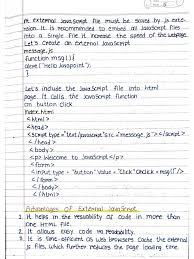 An external JavaScript file must be saved by .js exten-
sion. It is recommended to embed all JavaScript files
into a single file. It increase the speed of the webpage.
Let's create an external JavaScript
message.js
function msg(){
alert ("Hello Javapoint");
}
Let's include the JavaScript file into html
page. It calls the JavaScript function
on button click.
index.html
<html>
<head>
<script type="text/javascript" src="message.js"></script>
</head>
<body>
<p> Welcome to JavaScript </p>
<form>
<input type="button" value="Click" onclick="msg()"/>
</form>
</body>
</html>
Advantages of External JavaScript
1. It helps in the reusability of code in more than
one HTML file.
2. It allows easy code readability.
3. It is time-efficient as web browsers cache the external
js files, which further reduces the page loading time.